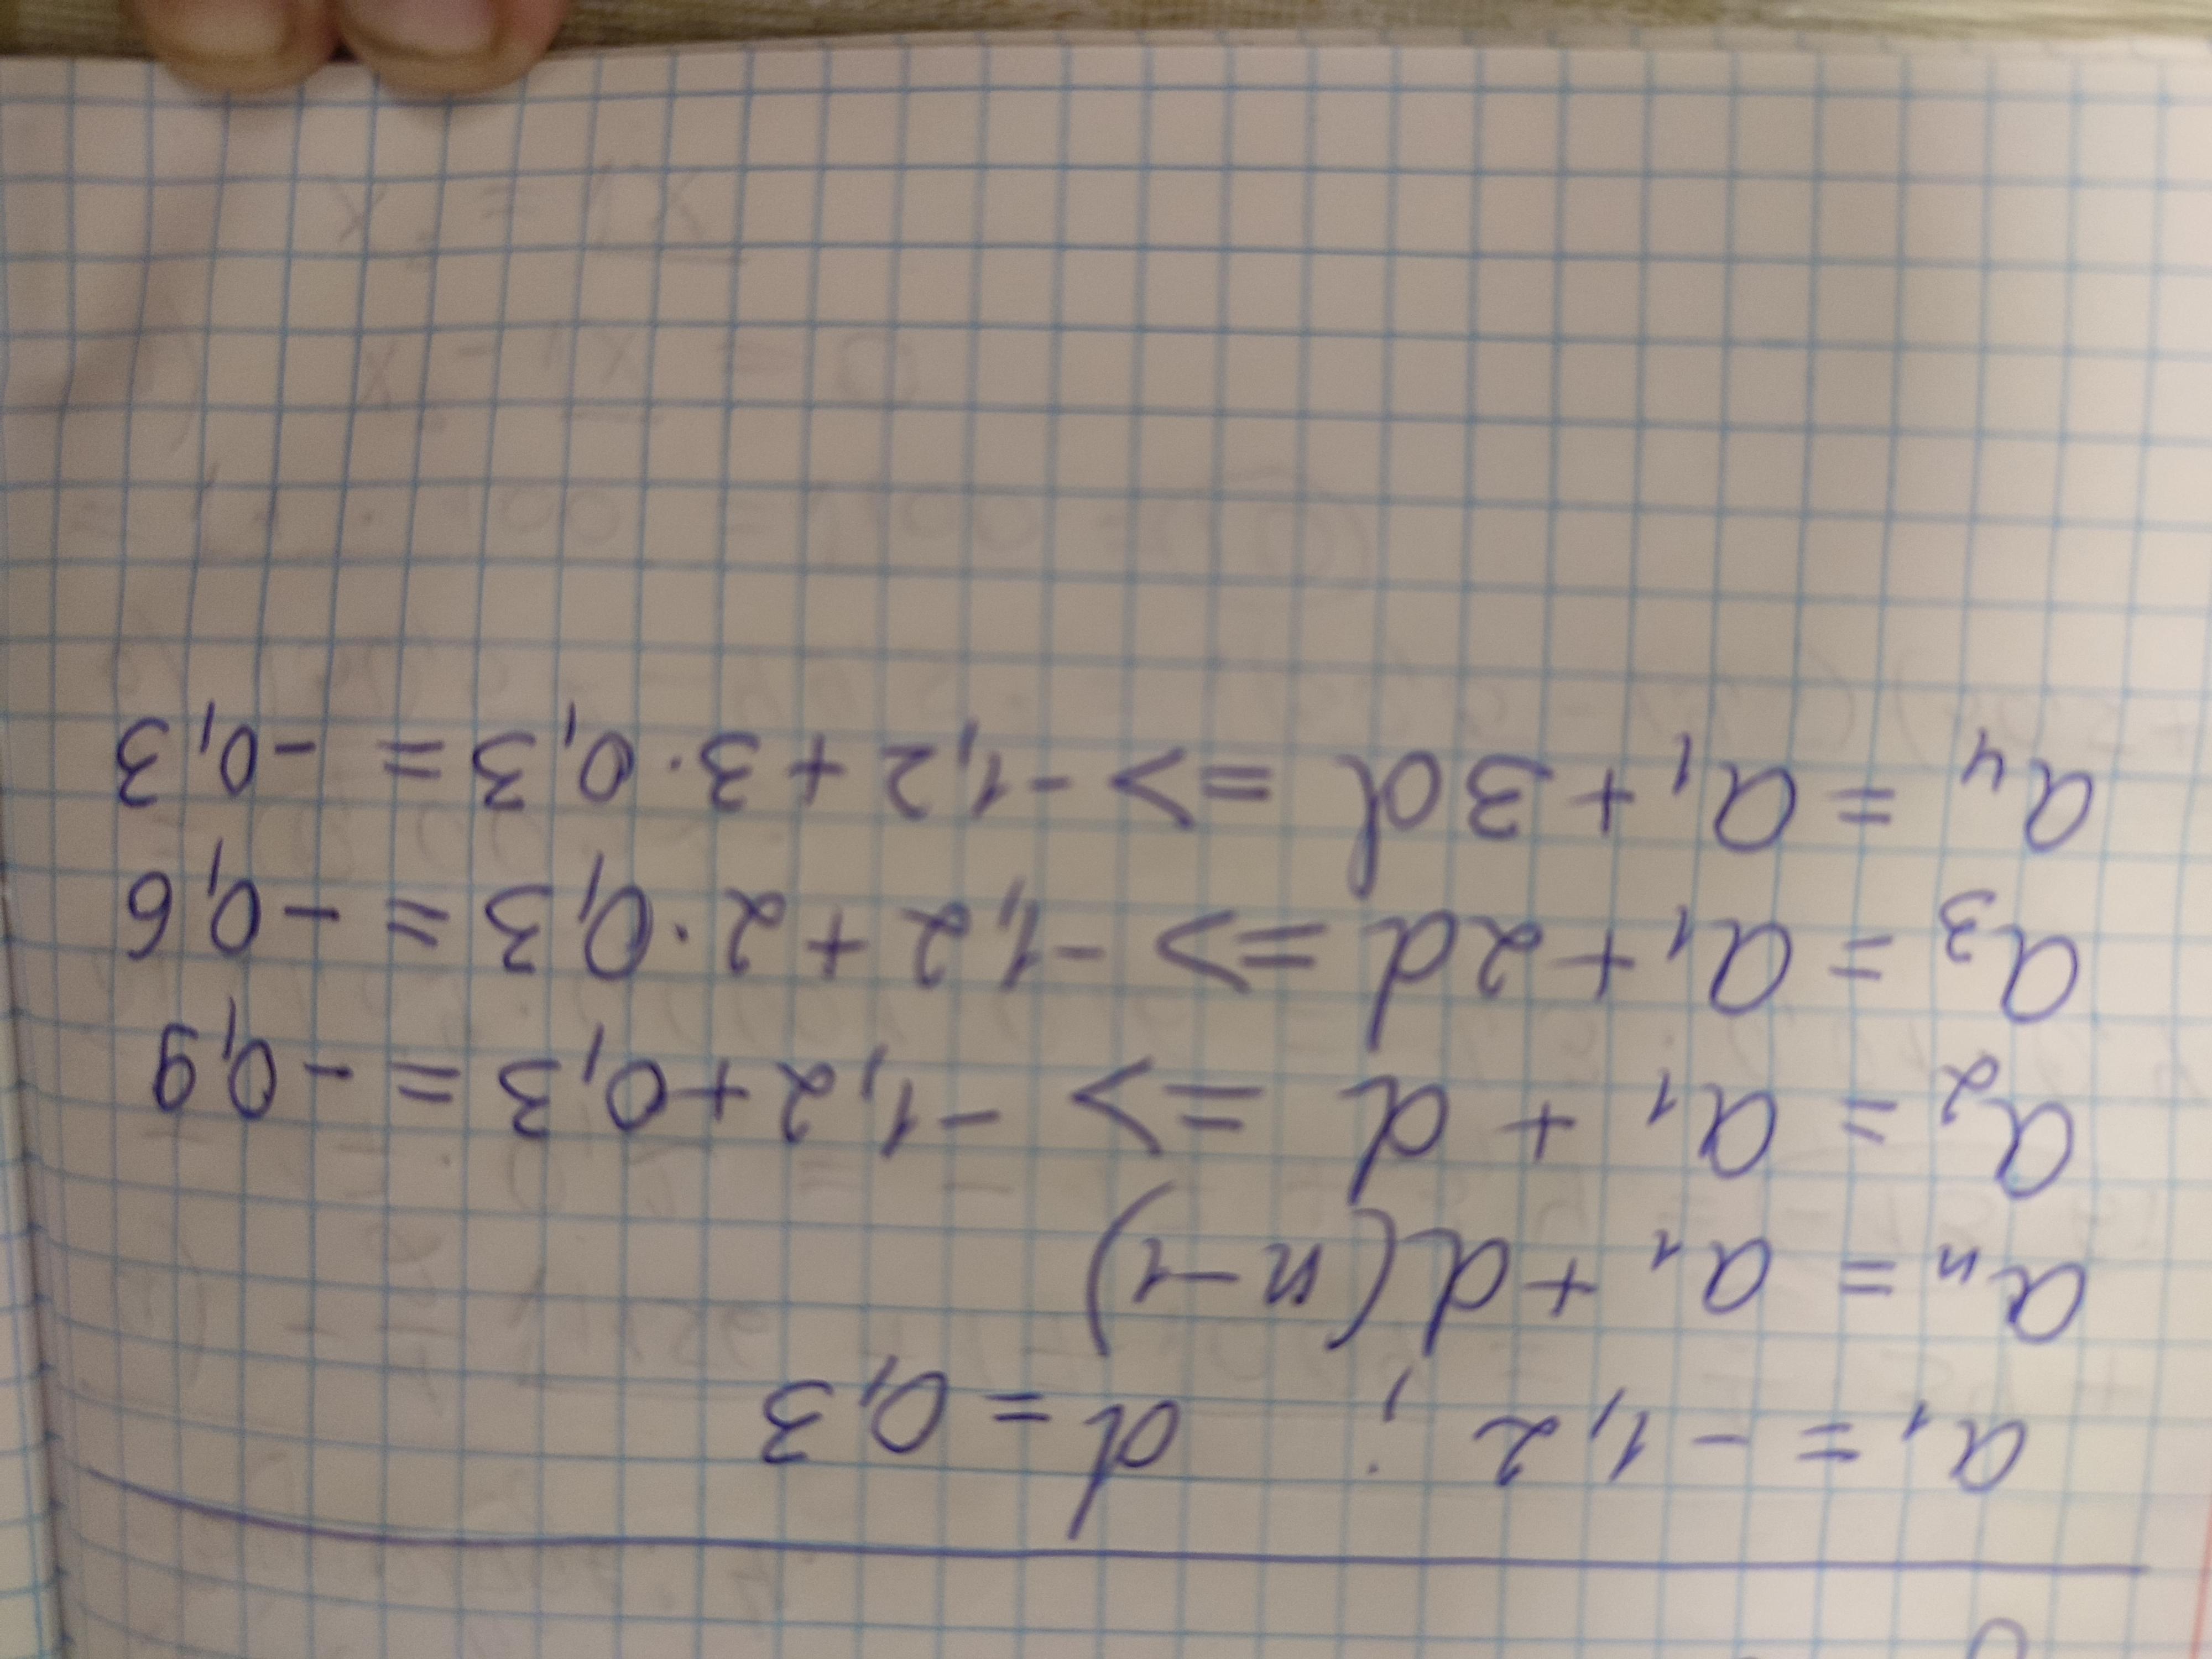 a₁ = -1,2 ; d = 0,3
aₙ = a₁ + d(n-1)
a₂ = a₁ + d => -1,2+0,3 = -0,9
a₃ = a₁ + 2d => -1,2 + 2·0,3 = -0,6
a₄ = a₁ + 3d => -1,2 + 3·0,3 = -0,3